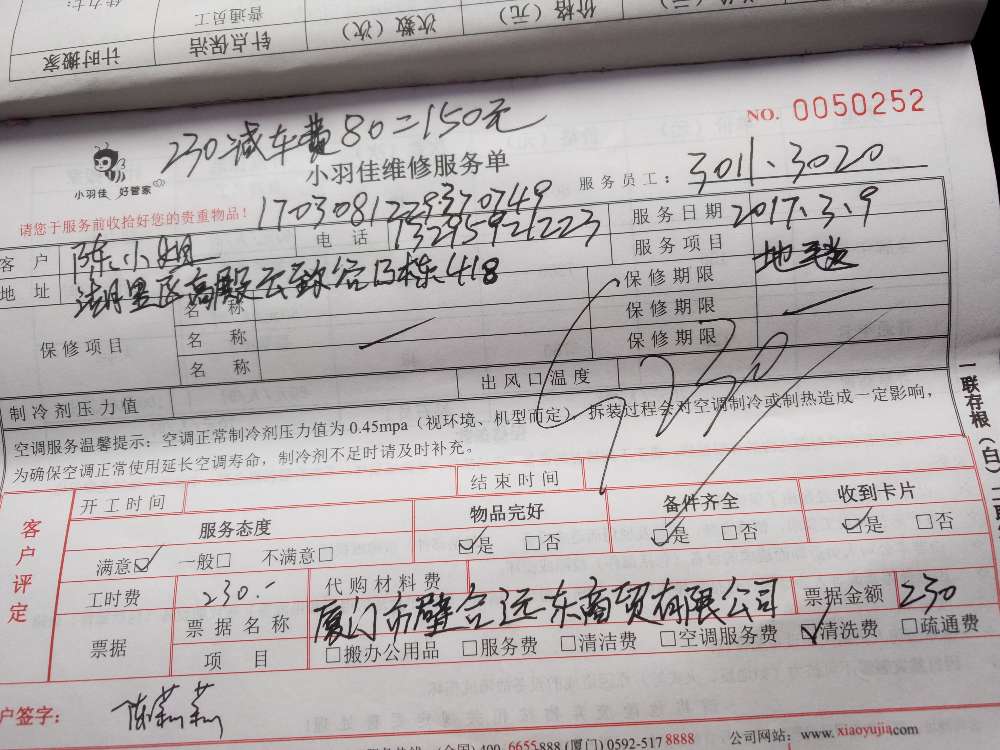 计时搬家 针点保洁 次数（次） 价格（元）
普通员工
NO. 0050252
230减车费80=150元
小羽佳 好管家
小羽佳维修服务单
服务员工：3011、3020
请您于服务前收拾好您的贵重物品！
1703081229370749
客户 陈小姐 电话 13295921223 服务日期 2017.3.9
地址 湖里区高殿云致谷B栋418 服务项目 地毯
保修项目 名称 保修期限
名称 保修期限
名称 保修期限
230
制冷剂压力值 出风口温度
空调服务温馨提示：空调正常制冷剂压力值为0.45mpa（视环境、机型而定），拆装过程会对空调制冷或制热造成一定影响，
为确保空调正常使用延长空调寿命，制冷剂不足时请及时补充。
一联存根（白）
客户评定
开工时间 结束时间
服务态度 物品完好 备件齐全 收到卡片
满意☑ 一般□ 不满意□ ☑是 □否 ☑是 □否 ☑是 □否
工时费 230.- 代购材料费
票据 票据名称 厦门市壁合远东商贸有限公司 票据金额 230
项目 □搬办公用品 □服务费 □清洁费 □空调服务费 ☑清洗费 □疏通费
户签字： 陈莉莉
(全国) 400 6655 888 (厦门) 0592-517 8888 公司网站：www.xiaoyujia.com